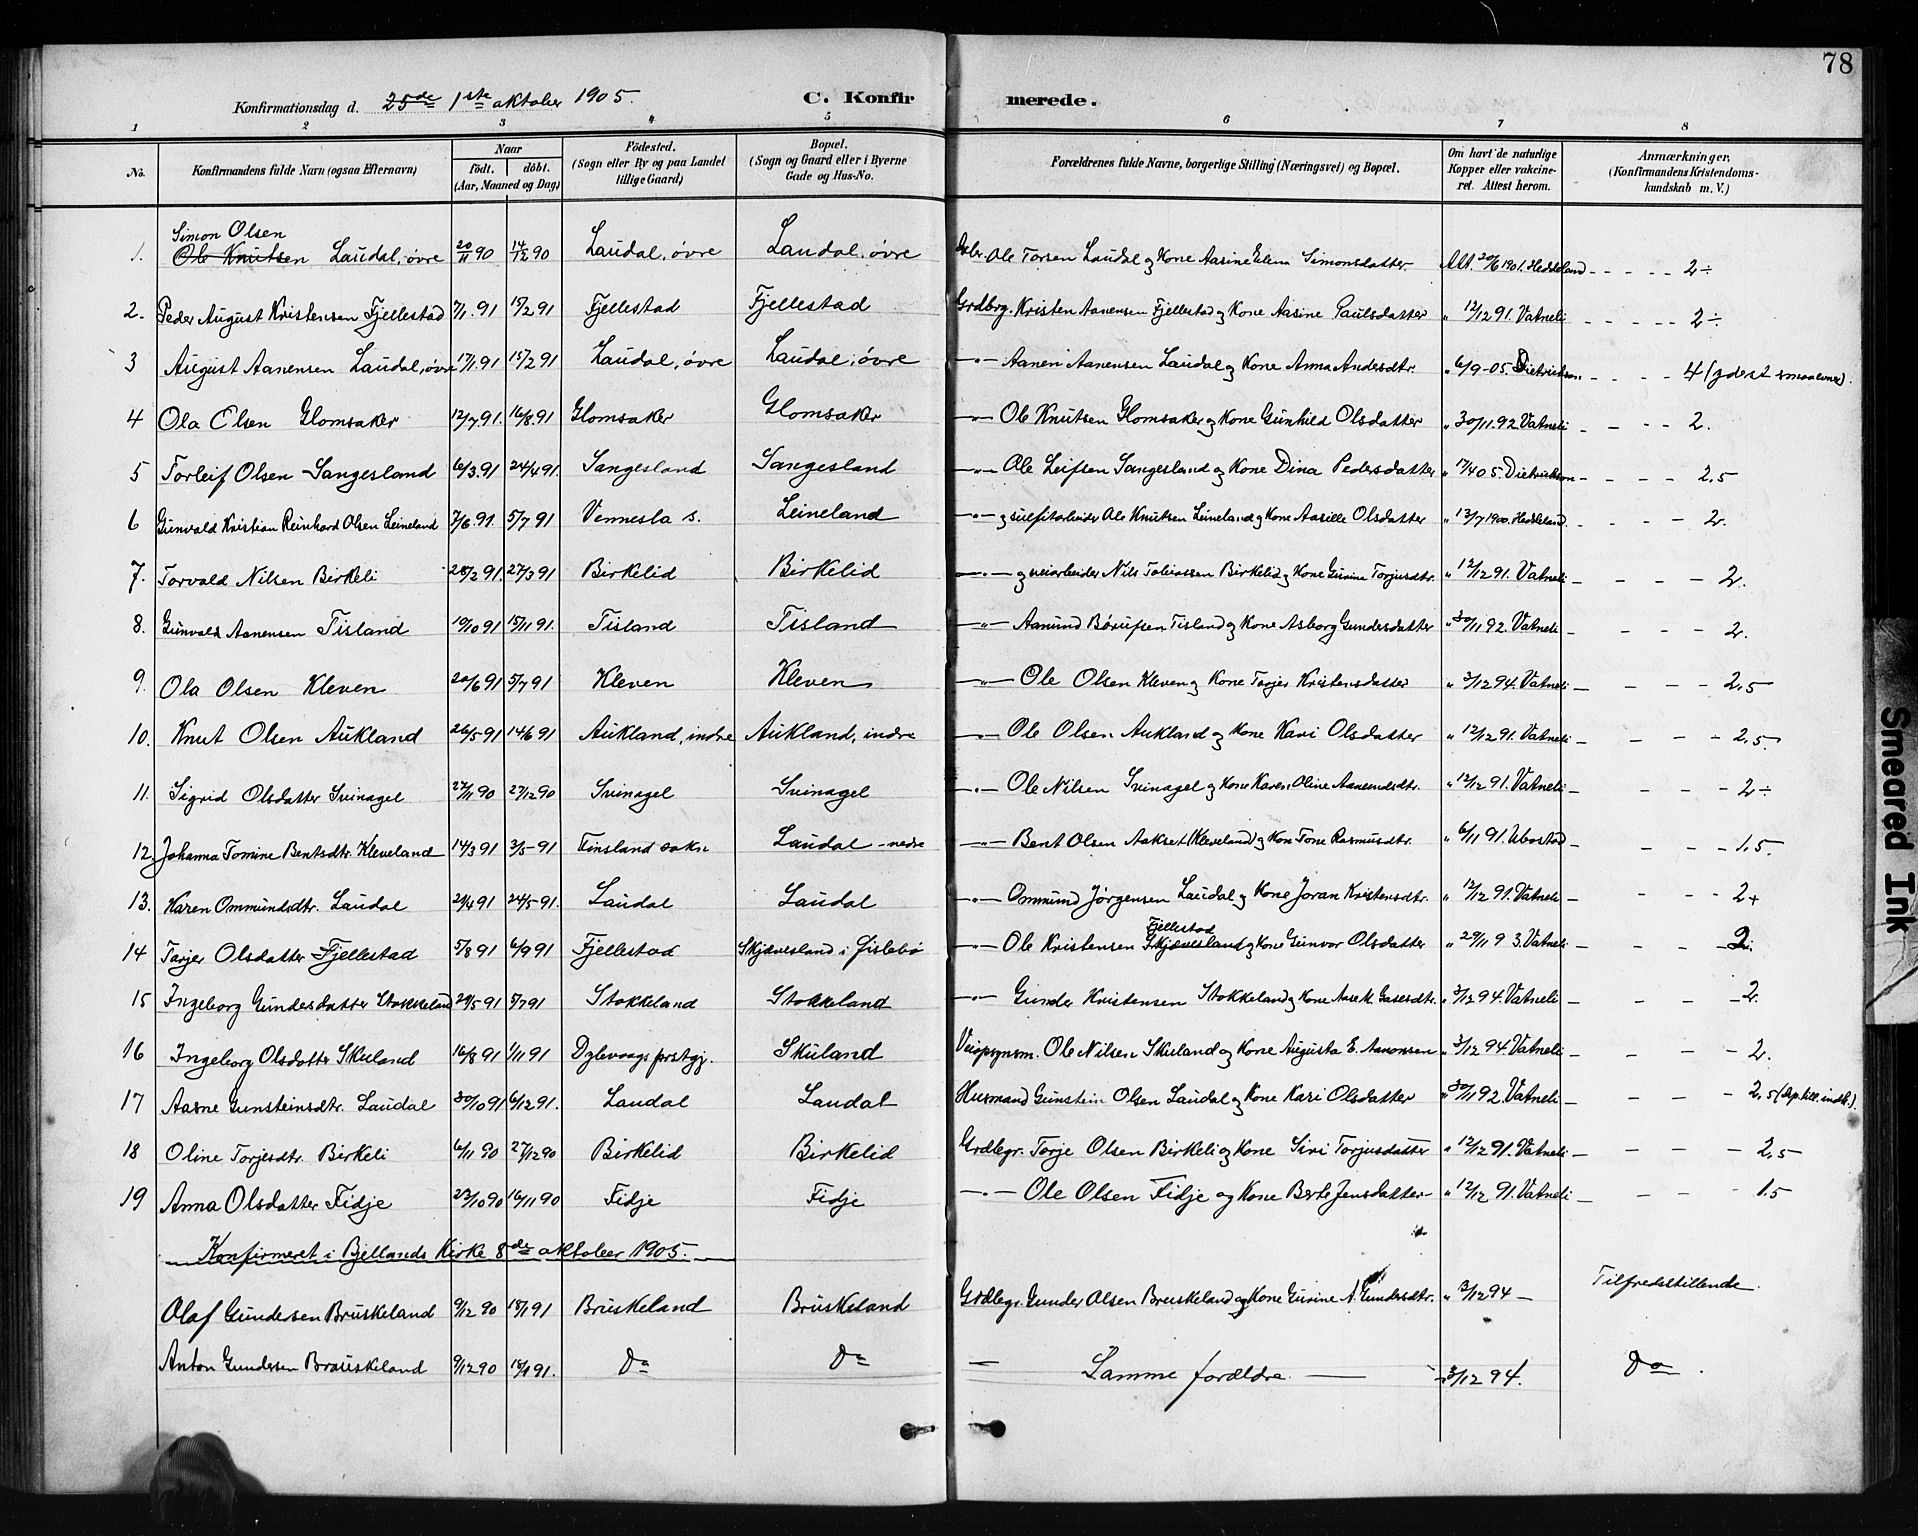 78
Konfirmationsdag d. 25de 1ste oktober 1905.
C. Konfirmerede.
1 2 3 4 5 6 7 8
No.
Konfirmandens fulde Navn (ogsaa Efternavn)
Naar
födt. döbt.
(Aar, Maaned og Dag)
Födested.
(Sogn eller By og paa Landet
tillige Gaard)
Bopæl.
(Sogn og Gaard eller i Byerne
Gade og Hus-No.
Forældrenes fulde Navne, borgerlige Stilling (Næringsvei) og Bopæl.
Om havt de naturlige
Kopper eller vakcine-
ret. Attest herom.
Anmærkninger.
(Konfirmandens Kristendoms-
kundskab m. V.)
Simon Olsen
1. Ole Knutsen Laudal, øvre 20/11 90 14/12 90 Laudal, øvre Laudal, øvre Ole Torsen Laudal og Kone Aasine Elena Simonsdatter Att. 20/6 1901. Heddeland - - - - - 2÷
2. Peder August Kristensen Fjellestad 7/1 91 15/2 91 Fjellestad Fjellestad Grdbrg. Kristen Aanensen Fjellestad og Kone Aasine Paulsdatter " 12/12 91. Vatneli - - - - - 2÷
3 August Aanensen Laudal, øvre 17/1 91 15/2 91 Laudal, øvre Laudal, øvre —"— Aanen Aanensen Laudal og Kone Anna Andersdtr. " 6/9-05. Dietrichson - - - - 4 (
4 Ola Olsen Glomsaker 12/7 91. 16/8 91 Glomsaker Glomsaker —"— Ole Knutsen Glomsaker og Kone Gunhild Olsdatter " 30/11. 92. Vatneli - - - - 2.
5 Torleif Olsen Sangesland 6/3. 91 24/4 91. Sangesland Sangesland —"— Ole Leifsen Sangesland og Kone Dina Pedersdatter " 17/4 05. Dietrichson - - - - 2,5
6 Gunvald Kristian Reinhard Olsen Leineland 7/6 91. 5/7 91 Vennesla s. Leineland —"— og Ole Knutsen Leineland og Kone Aasille Olsdatter " 13/7 1900. Heddeland. - - - - 2.
7. Torvald Nilsen Birkeli 28/2 91. 27/3 91 Birkelid Birkelid —"— og veiarbeider Nils Tobiassen Birkelid og Kone Gurine Torjusdtr. " 12/12 91. Vatneli - - - - 2.
8. Gunvald Aanensen Tisland 19/10 91 15/11 91. Tisland Tisland —"— Aanund Børufsen Tisland og Kone Asborg Gundersdatter " 30/11 92. Vatneli - - - - 2.
9. Ola Olsen Kleven 20/6 91 5/7 91 Kleven Kleven —"— Ole Olsen Kleven og Kone Torjer Kristensdatter " 3/12 94. Vatneli - - - - 2,5
10. Knut Olsen Aukland 26/5 91 14/6 91 Aukland, indre Aukland, indre —"— Ole Olsen Aukland og Kone Kari Olsdatter " 12/12 91. Vatneli - - - - 2,5.
11. Sigrid Olsdatter Svinagel 27/11 90 27/12 90 Svinagel Svinagel —"— Ole Nilsen Svinagel og Kone Karen Oline Aanundsdtr. " 12/12 91. Vatneli - - - - 2÷
12. Johanna Tomine Bentsdtr. Kleveland 14/3 91 3/5-91 Finsland sokn Laudal - nedre —"— Bent Olsen (Kleveland) og Kone Tone Rasmusdtr. " 6/11 91. Ubostad - - - 1,5.
13. Karen Ommundsdtr. Laudal 2/4 91 24/5-91. Laudal Laudal —"— Ommund Jørgensen Laudal og Kone Joran Kristensdtr. " 12/12 91. Vatneli - - - - 2+
Fjellestad
14 Torjer Olsdatter Fjellestad 5/8 91 6/9 91 Fjellestad Skjævesland i Øislebø —"— Ole Kristensen Skjævesland og Kone Gunvor Olsdatter " 29/11 93. Vatneli - - - - 2.
15 Ingeborg Gundersdatter Stokkeland 29/5 91 5/7 91 Stokkeland Stokkeland —"— Gunder Kristensen Stokkeland og Kone " 3/12 94. Vatneli - - - - 2.
16 Ingeborg Olsdatter Skuland 16/8 91 1/11 91 prstgj. Skuland Veiopsynsm. Ole Nilsen Skuland og Kone Augusta E. Aanonsen " 3/12 94 Vatneli - - - - 2.
17 Aasne Gunsteinsdtr. Laudal 30/10 91 6/12 91. Laudal Laudal Husmand Gunstein Olsen Laudal og Kone Kari Olsdatter " 30/11 92. Vatneli - - - - 2,5
18 Oline Torjesdtr. Birkeli 6/11 90 27/12 90 Birkelid Birkelid Grdbgr. Torje Olsen Birkeli og Kone Siri Torjusdatter " 12/12 91. Vatneli - - - - 2,5
19 Anna Olsdatter Fidje 23/10 90 16/11 90 Fidje Fidje —"— Ole Olsen Fidje og Kone Berte Jensdatter " 12/12 91. Vatneli - - - - 1.5
Konfirmeret i Bjellands Kirke 8de oktober 1905.
Olaf Gundersen Bruskeland 9/12 90 18/1 91 Bruskeland Bruskeland Grdbgr. Gunder Olsen Bruskeland og Kone Gurine A. Gundersdtr. " 3/12 94 — Tilfredsstillende
Anton Gundersen Bruskeland 9/12 90 18/1 91. Do Do — Samme forældre — 3/12 94. Do.
Smeared Ink